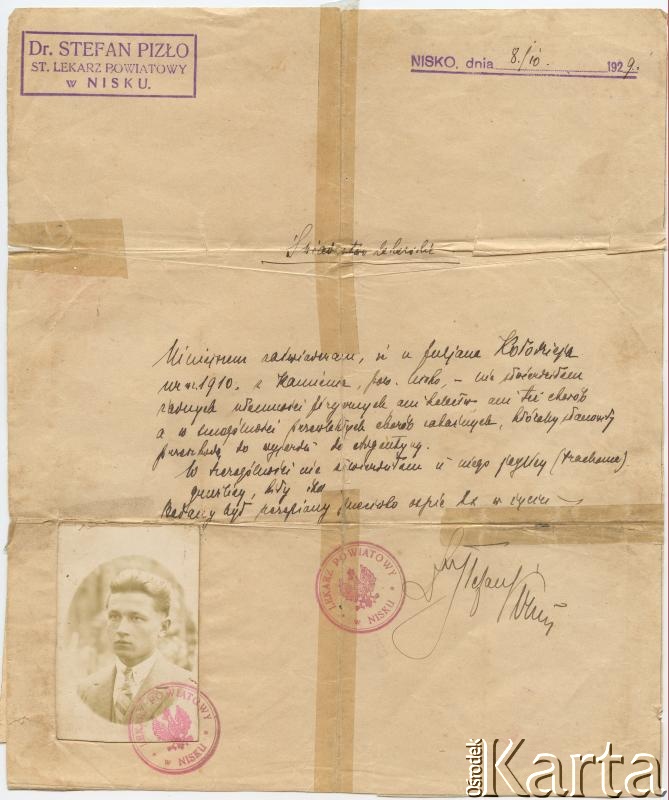 Dr. STEFAN PIZŁO
ST. LEKARZ POWIATOWY
w NISKU.
NISKO, dnia 8/10. 1929.
Świadectwo lekarskie
Niniejszem zaświadczam, iż u Juljana Kołodzieja
ur. w r. 1910. z Kamienia, pow. Nisko, - nie stwierdziłem
żadnych ułomności fizycznych ani kalectw ani też chorób
a w szczególności przewlekłych chorób zakaźnych, któreby stanowiły
przeszkodę do wyjazdu do Argentyny.
W szczególności nie stwierdziłem u niego jaglicy (trachoma)
gruźlicy,
Badany był szczepiony przeciwko ospie 2x w życiu
Dr Stefan Pizło
LEKARZ POWIATOWY
w NISKU
LEKARZ POWIATOWY
w NISKU
Ośrodek
Karta